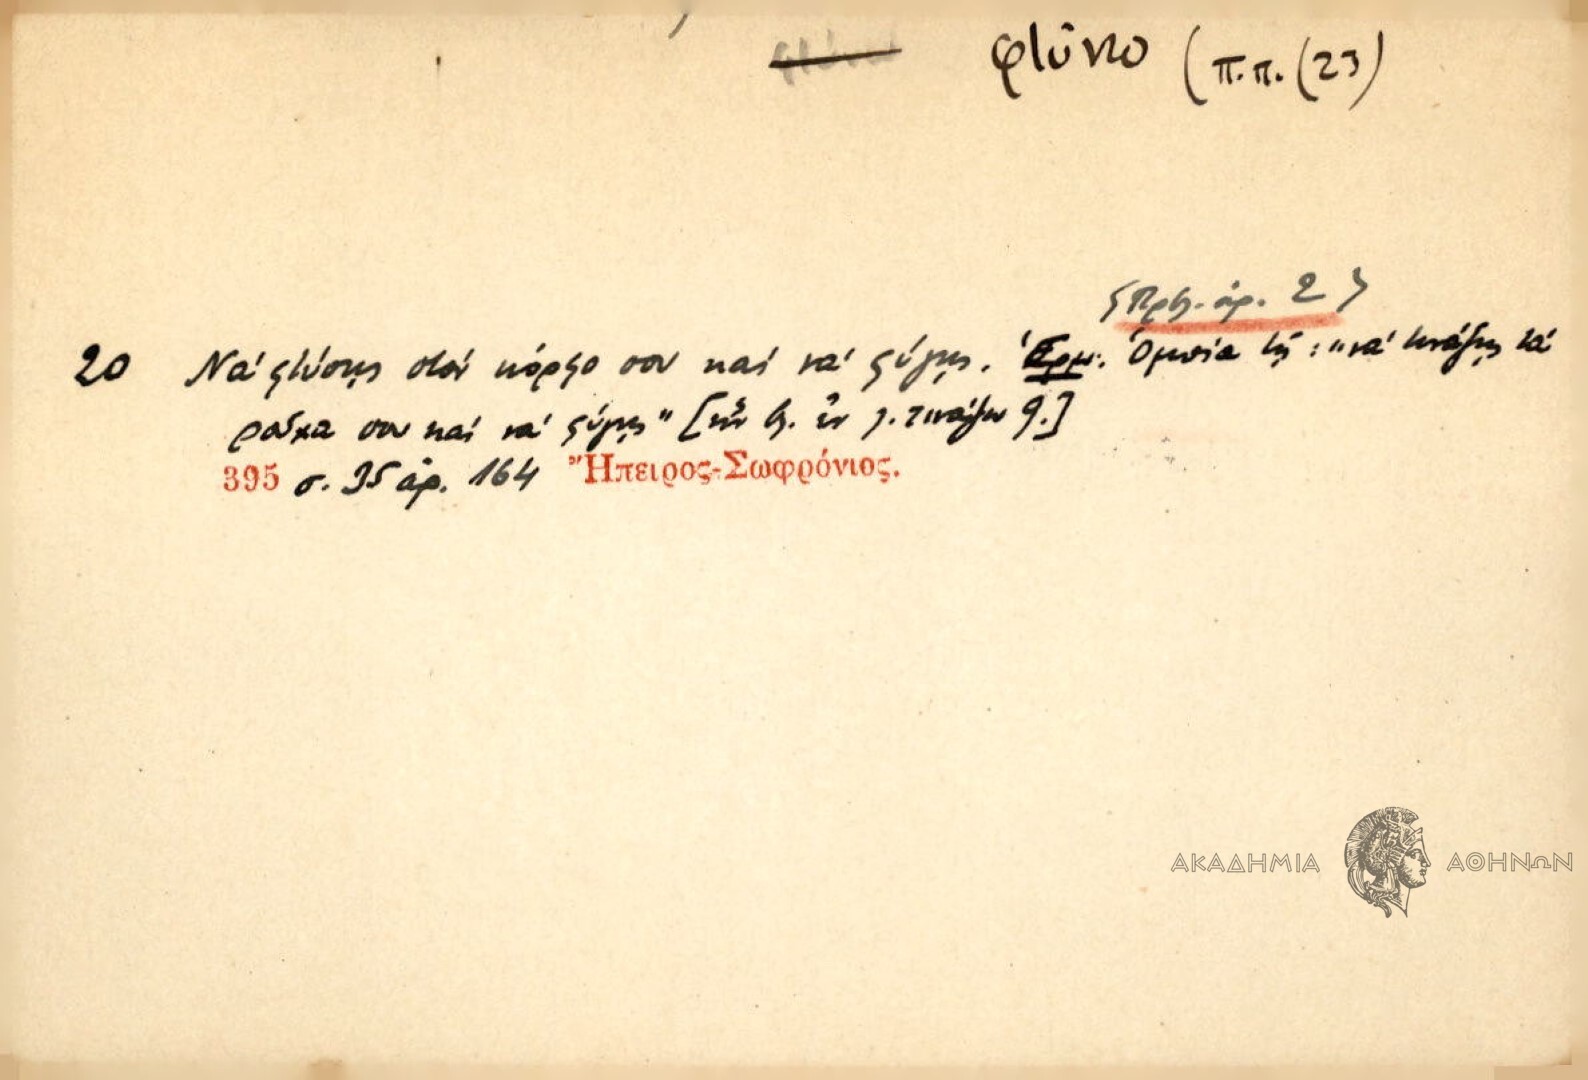 φτύνω (π.π. (23)
{Πρβ. ἀρ. 2}
20 Νὰ φτύσῃς στὸν κόρφο σου καὶ νὰ φύγῃς. Ἑρμ. Ὁμοία τῇ: "νὰ τινάξῃς τὰ
ροῦχα σου καὶ νὰ φύγῃς" [ἣν βλ. ἐν λ. τινάζω 9.]
395 σ. 95 ἀρ. 164 Ἤπειρος-Σωφρόνιος.
ΑΚΑΔΗΜΙΑ ΑΘΗΝΩΝ